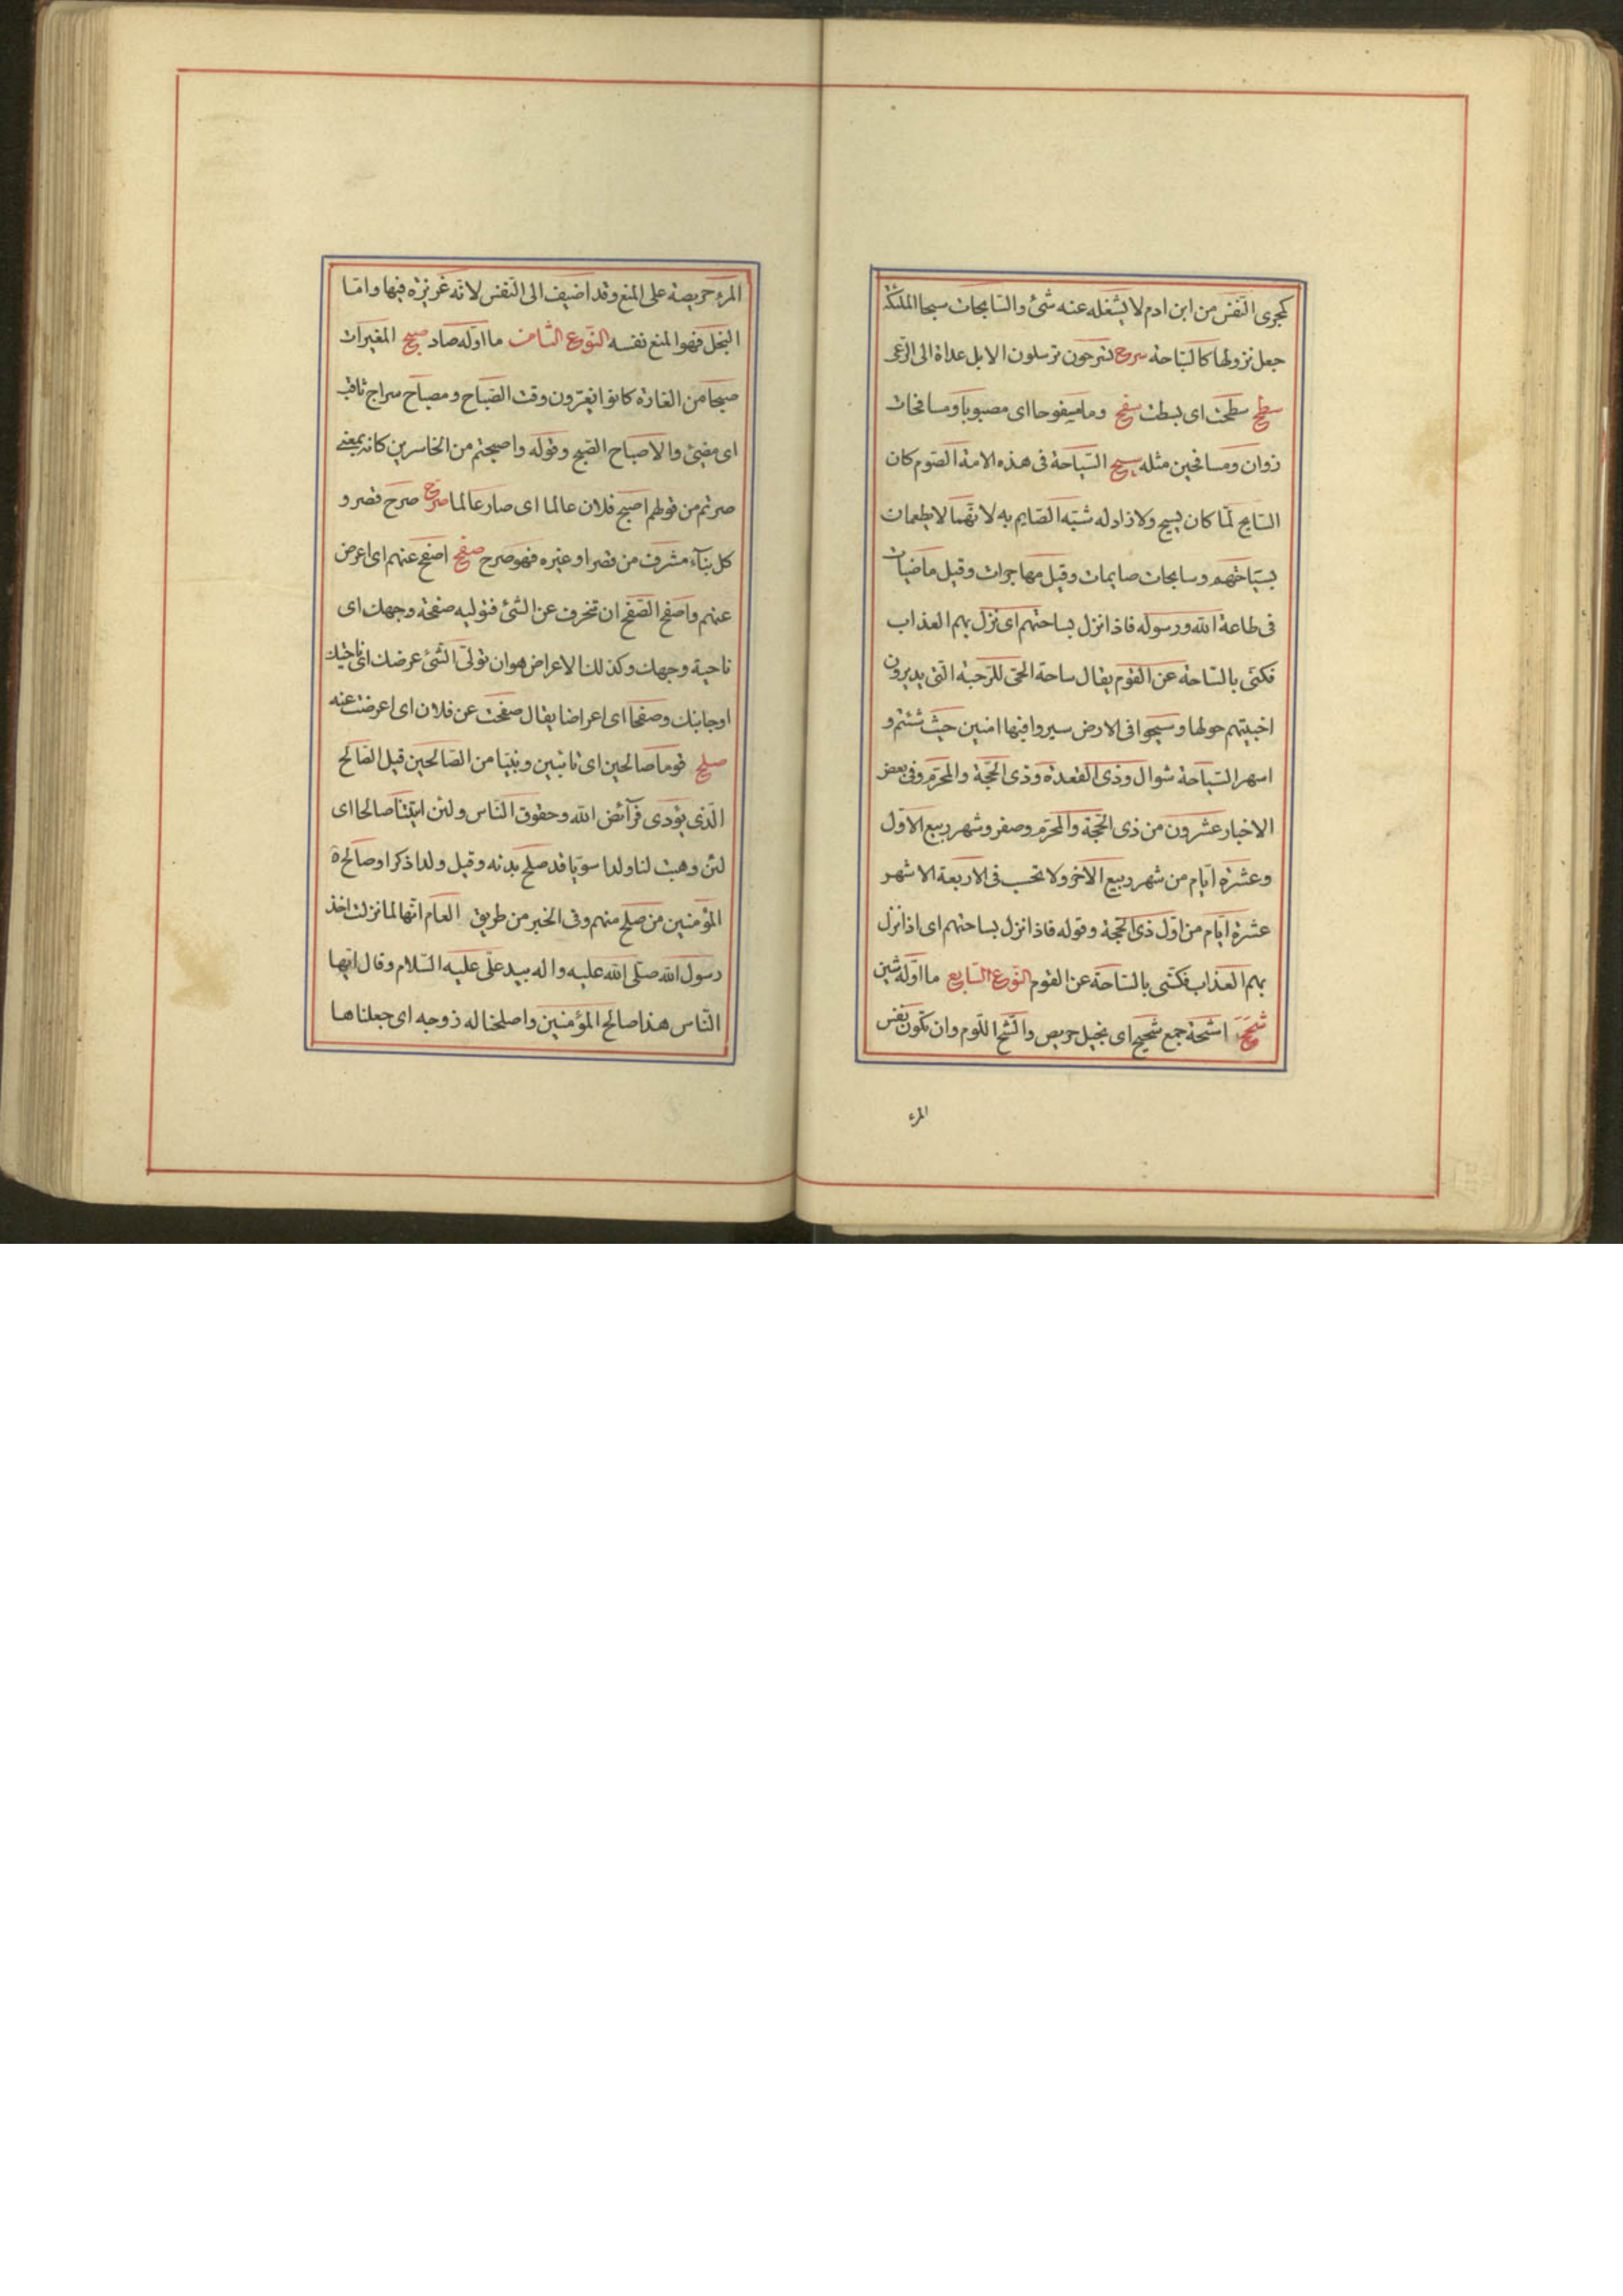 كمجرى النّفس من ابن ادم لا يشغله عنه شئ والسّابحات سبحا الملئكة
جعل نزولها كالسّباحة سرح تسرحون ترسلون الابل غداة الى الرّعى
سطح سطحت اى بسطت سفح وما مسفوحا اى مصبوبا ومسافحات
زوان ومسافحين مثله سيح السّياحة فى هذه الامة الصّوم كان
السّايح لمّا كان يسيح ولا زاد له شبّه الصّايم به لانّهما لا يطعمان
بسياحتهم وسايحات صايمات وقيل مهاجرات وقيل ماضيات
فى طاعة اللّه ورسوله فاذا نزل بساحتهم اى نزل بهم العذاب
فكنّى بالسّاحة عن القوم يقال ساحة الحىّ للرّحبة الّتى يديرون
اخبيتهم حولها وسيحوا فى الارض سيروا فيها امنين حيث شئتم و
اسهر السّياحة شوال وذى القعدة وذى الحجّة والمحرّم وفى بعض
الاخبار عشرون من ذى الحجّة والمحرّم وصفر وشهر ربيع الاوّل
وعشرة ايّام من شهر ربيع الآخر ولا يحسب فى الاربعة الاشهر
عشرة ايّام من اوّل ذى الحجّة وقوله فاذا نزل بساحتهم اى اذا نزل
بهم العذاب فكنّى بالسّاحة عن القوم النّوع السّابع ما اوّله شين
شحح اشحّة جمع شحيح اى بخيل حريص والشّح اللّوم وان تكون نفس
المرء
المرء حريصة على المنع وقد اضيف الى النّفس لانّه غريزة فيها وامّا
البخل فهو المنع نفسه النّوع الثّامن ما اوّله صاد صبح المغيرات
صبحا من الغارة كانوا يغيرون وقت الصّباح ومصباح سراج ثاقب
اى مضيئ والاصباح الصّبح وقوله واصبحتم من الخاسرين كانه بمعنى
صرتم من قولهم اصبح فلان عالما اى صار عالما صرح صرح قصر و
كل بنآء مشرف من قصر او غيره فهو صرح صفح اصفح عنهم اى اعرض
عنهم واصفح الصّفح ان تنحرف عن الشّئ فتوليه صفحة وجهك اى
ناحية وجهك وكذلك الاعراض هو ان تولّى الشّئ عرضك اى ناحيتك
او جانبك وصفحا اى اعراضا يقال صفحت عن فلان اى اعرضت عنه
صلح قوما صالحين اى تائبين ونبيّا من الصّالحين قيل الصّالح
الّذى يؤدّى فرآئض اللّه وحقوق النّاس ولئن اتيتنا صالحا اى
لئن وهبت لنا ولدا سويّا قد صلح بدنه وقيل ولدا ذكرا وصالح
المؤمنين من صلح منهم وفى الخبر من طريق العام انّها لما نزلت اخذ
رسول اللّه صلّى اللّه عليه واله بيد علىّ عليه السّلام وقال ايّها
النّاس هذا صالح المؤمنين واصلحنا له زوجه اى جعلناها